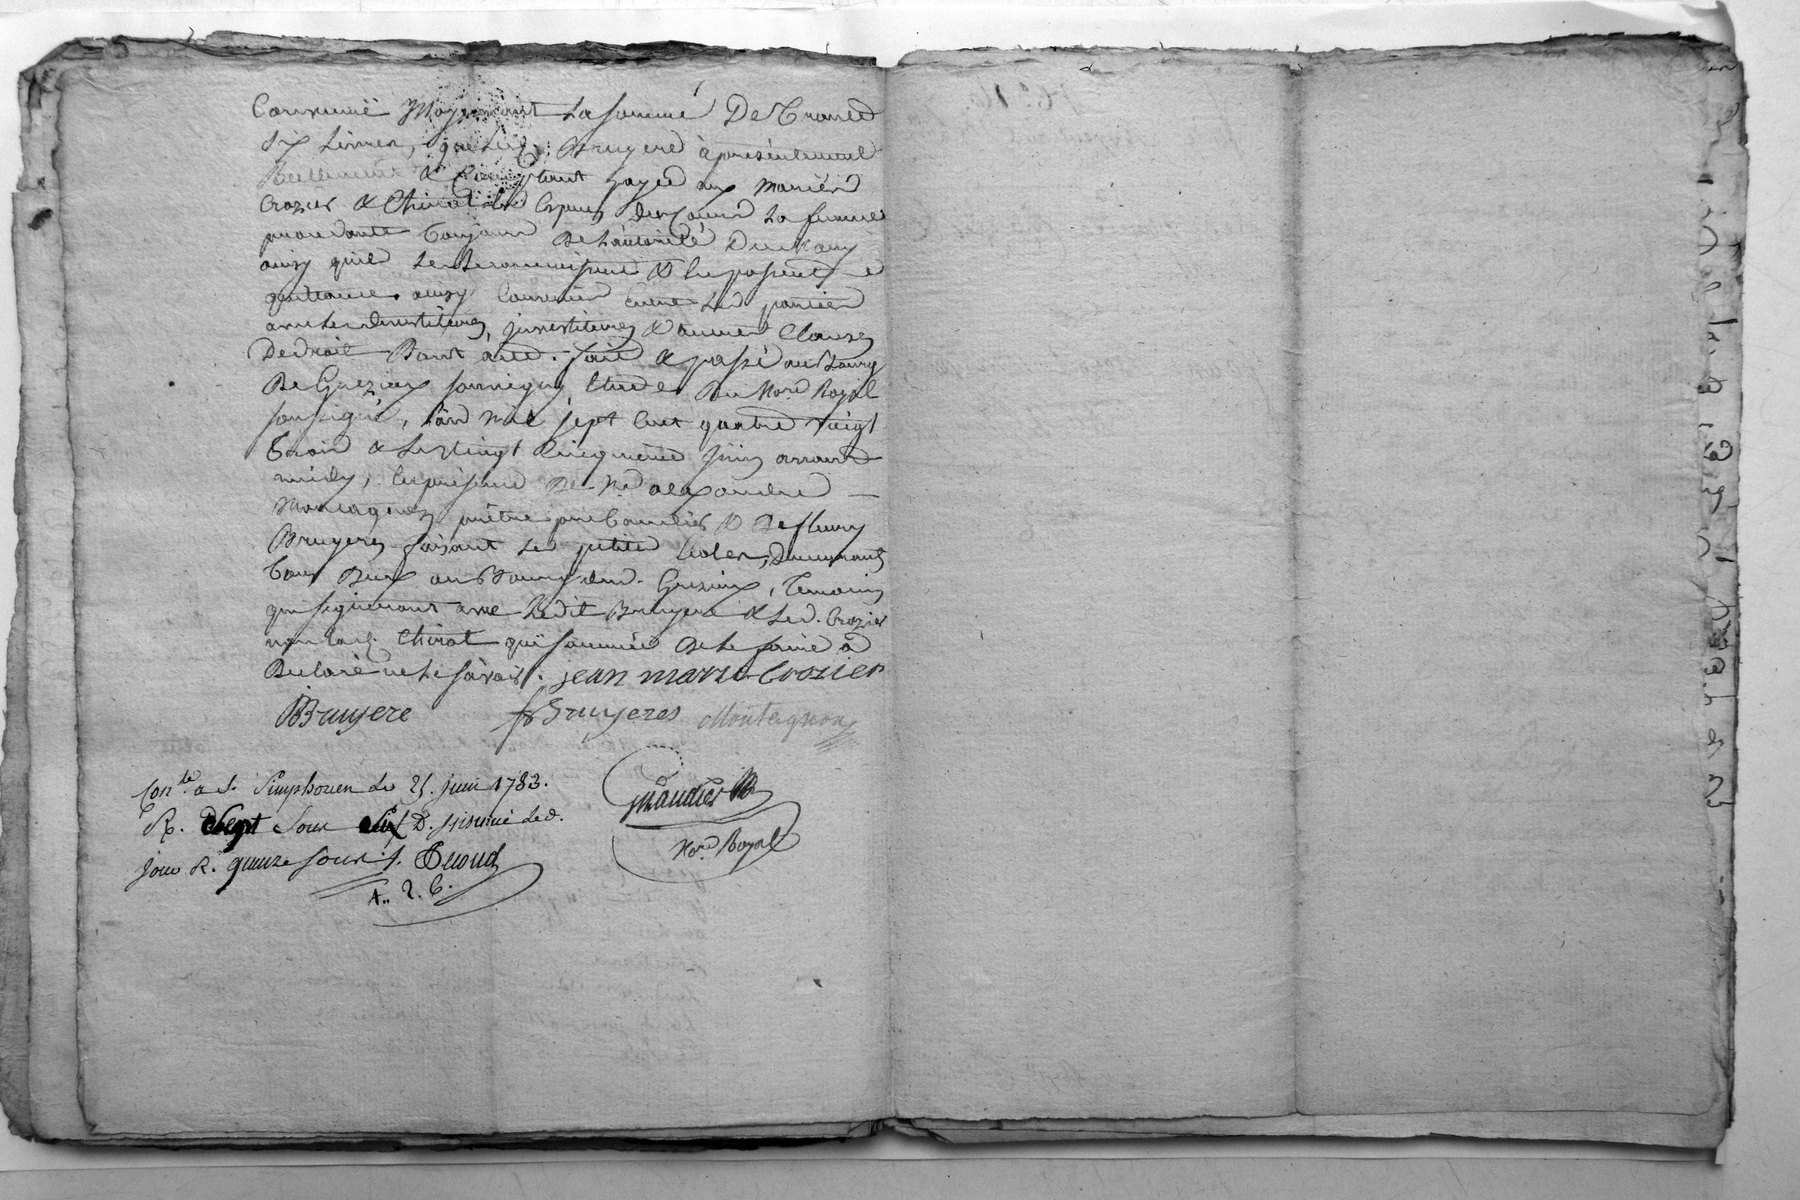 Convenüe Moyennant La somme De Trante
Six Livres, que led. Bruyere àprésentement
Reellement & Comptant payée aux Mariés
Crozier & Chirat des Espèces du Cours La femme
procedante toujours De L'autorité Du Mary
ainsy qu'il Le Reconnoissent & En passent
quittance. ainsy Convenu Entre Led parties
avec les devestitures, investitures & autres Clauses
De droit Dont acte. fait & passé au Bourg
De Grezieu Souvigny, Etude Du No.re Royal
soussigné, L'an mil sept Cent quatre vingt
trois & Le Vingt Cinquième Juin avant
midy, En présence De M.re alexandre
Montagnon prêtre & De fleury
Bruyeres faisant Les petites Ecoles, Demeurants
tous Deux au Bourg dud. Grezieu, Temoins
qui signeront avec Ledit Bruyere & Led. Crozier
non lad. Chirat quï sommée De le faire à
Declaré ne le sàvoir. jean marie Crozier
Bruyere f Bruyeres Montagnon
Con.lé a S. Simphorien Le 25. juin 1783.
R. Sept Sous D. Led.
jour R. quinze sous
No.re Royal